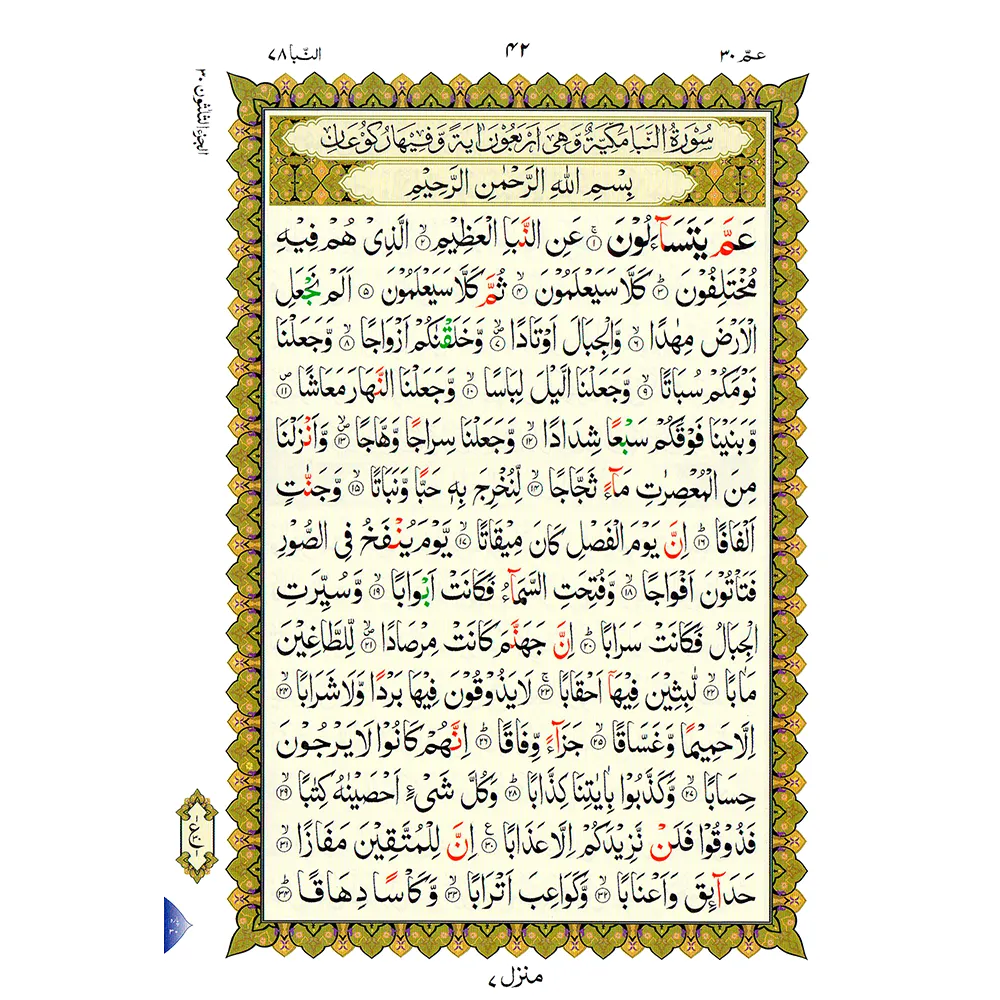 عـمّ ٣٠
٤٢
النّبا ٧٨
الجزء الثلٰثون ٣٠
سُوْرَةُ النَّبَاِ مَكِّيَّةٌ وَّهِىَ اَرْبَعُوْنَ اٰيَةً وَّفِيْهَا رُكُوْعَانِ
بِسْمِ اللهِ الرَّحْمٰنِ الرَّحِيْمِ
عَمَّ يَتَسَآءَلُوْنَ ۝١ عَنِ النَّبَاِ الْعَظِيْمِ ۝٢ الَّذِىْ هُمْ فِيْهِ
مُخْتَلِفُوْنَ ۝٣ كَلَّا سَيَعْلَمُوْنَ ۝٤ ثُمَّ كَلَّا سَيَعْلَمُوْنَ ۝٥ اَلَمْ نَجْعَلِ
الْاَرْضَ مِهٰدًا ۝٦ وَّالْجِبَالَ اَوْتَادًا ۝٧ وَّخَلَقْنٰكُمْ اَزْوَاجًا ۝٨ وَّجَعَلْنَا
نَوْمَكُمْ سُبَاتًا ۝٩ وَّجَعَلْنَا الَّيْلَ لِبَاسًا ۝١٠ وَّجَعَلْنَا النَّهَارَ مَعَاشًا ۝١١
وَّبَنَيْنَا فَوْقَكُمْ سَبْعًا شِدَادًا ۝١٢ وَّجَعَلْنَا سِرَاجًا وَّهَّاجًا ۝١٣ وَّاَنْزَلْنَا
مِنَ الْمُعْصِرٰتِ مَآءً ثَجَّاجًا ۝١٤ لِّنُخْرِجَ بِهٖ حَبًّا وَّنَبَاتًا ۝١٥ وَّجَنّٰتٍ
اَلْفَافًا ۝١٦ اِنَّ يَوْمَ الْفَصْلِ كَانَ مِيْقَاتًا ۝١٧ يَّوْمَ يُنْفَخُ فِى الصُّوْرِ
فَتَاْتُوْنَ اَفْوَاجًا ۝١٨ وَّفُتِحَتِ السَّمَآءُ فَكَانَتْ اَبْوَابًا ۝١٩ وَّسُيِّرَتِ
الْجِبَالُ فَكَانَتْ سَرَابًا ۝٢٠ اِنَّ جَهَنَّمَ كَانَتْ مِرْصَادًا ۝٢١ لِّلطَّاغِيْنَ
مَاٰبًا ۝٢٢ لّٰبِثِيْنَ فِيْهَآ اَحْقَابًا ۝٢٣ لَا يَذُوْقُوْنَ فِيْهَا بَرْدًا وَّلَا شَرَابًا ۝٢٤
اِلَّا حَمِيْمًا وَّغَسَّاقًا ۝٢٥ جَزَآءً وِّفَاقًا ۝٢٦ اِنَّهُمْ كَانُوْا لَا يَرْجُوْنَ
حِسَابًا ۝٢٧ وَّكَذَّبُوْا بِاٰيٰتِنَا كِذَّابًا ۝٢٨ وَكُلَّ شَىْءٍ اَحْصَيْنٰهُ كِتٰبًا ۝٢٩
فَذُوْقُوْا فَلَنْ نَّزِيْدَكُمْ اِلَّا عَذَابًا ۝٣٠ اِنَّ لِلْمُتَّقِيْنَ مَفَازًا ۝٣١
حَدَآئِقَ وَاَعْنَابًا ۝٣٢ وَّكَوَاعِبَ اَتْرَابًا ۝٣٣ وَّكَاْسًا دِهَاقًا ۝٣٤
پارہ
٣٠
منزل ٧